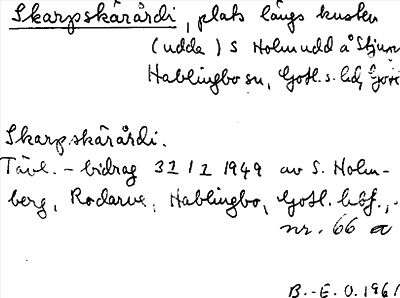 Skarpskärårdi, plats längs kusten
(udda) S Holmudd å
Hablingbo sn, Gotl. s. hd,
Skarpskärårdi.
Tävl. - bidrag 31 12 1949 av S. Holm-
berg, Rodarve, Hablingbo, Gotl.
nr. 66 a
B.-E. O. 1961